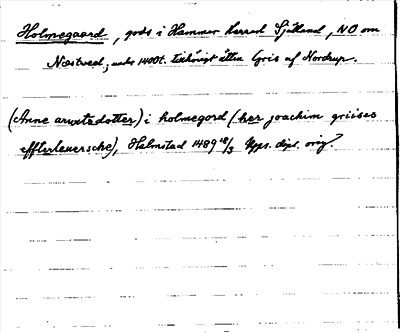 Holmegaard, gods i Hammer herred Sjælland, NO om
Næstved; under 1400t. tillhörigt ätten Gris af Nordrup.
(Anne arwitzdotter) i holmegord (her joachim griises
effterleuersche), Halmstad 1489 18/3 Upps. dipl. orig.